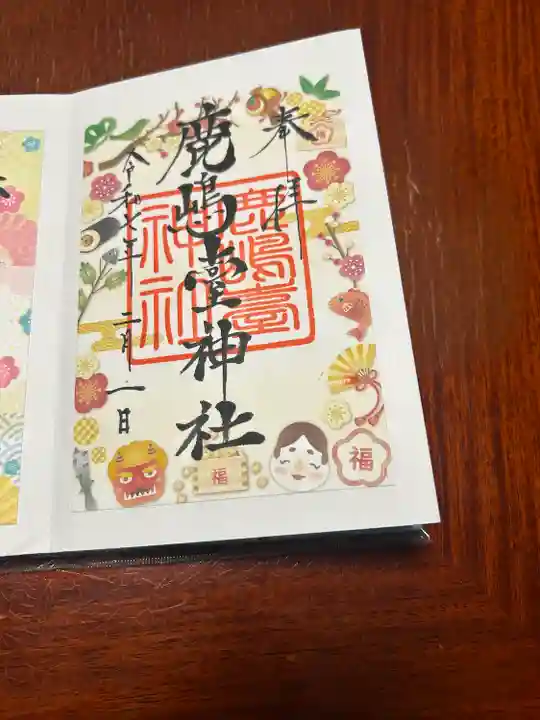 奉拝
鹿嶋臺神社
鹿嶋臺
神社
令和七年 二月 一日
福
福